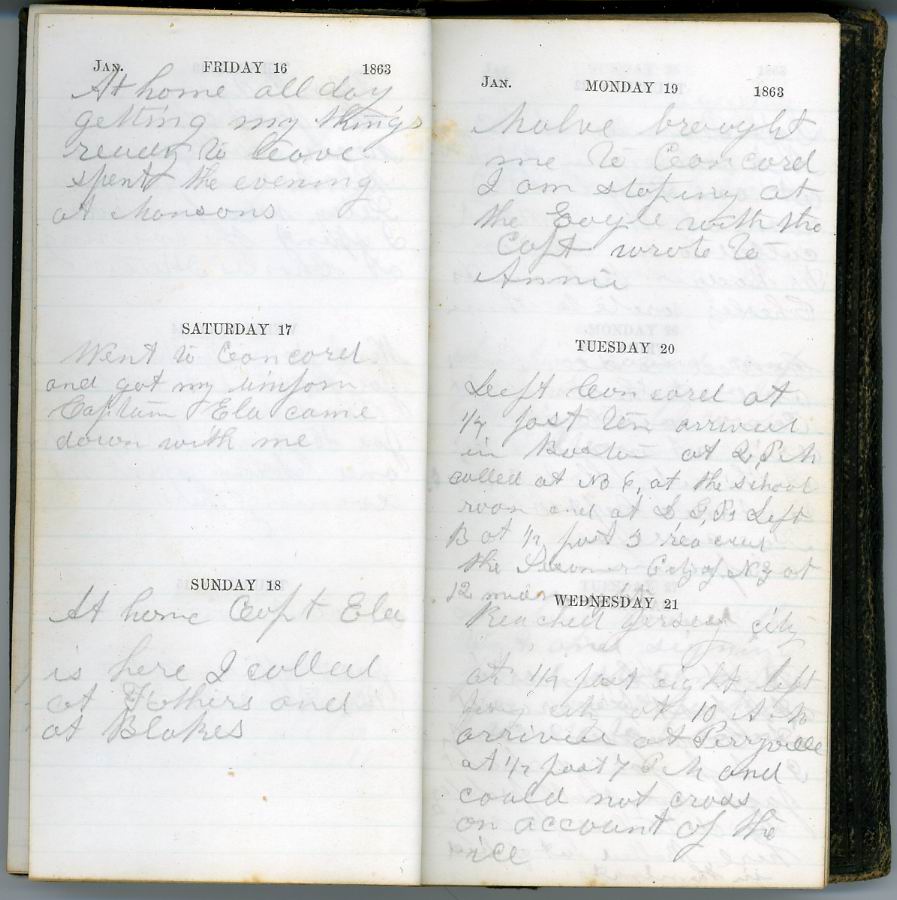 Jan. FRIDAY 16 1863
At home all day
getting my things
ready to leave
spent the evening
at Mansons
SATURDAY 17
Went to Concord
and got my uniform
Captain Ela came
down with me
SUNDAY 18
At home Capt Ela
is here I called
at Fathers and
at Blakes
Jan. MONDAY 19 1863
brought
me to Concord
I am stoping at
the Eagle with the
Capt wrote to
Annie
TUESDAY 20
Left Concord at
1/2 past ten arrived
in Boston at 2 P.M
called at No 6, at the school
room and at S G, Ps Left
B at 1/2 past 3 reached
the City of N.Y at
12
WEDNESDAY 21
Reached Jersey city
at 1/4 past eight left
city at 10 A M
arrived at Perryville
at 1/2 past 7 P M and
could not cross
on account of the
ice